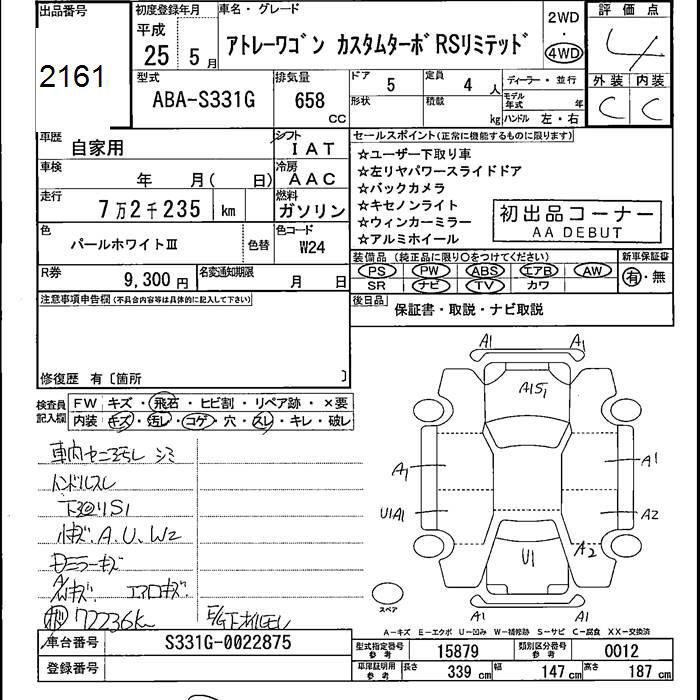 出品番号
2161
初度登録年月
平成
25 5 月
車名・グレード
アトレーワゴン カスタムターボRSリミテッド
2WD
・
4WD
評価点
4
外装 内装
C C
型式
ABA-S331G
排気量
658 CC
ドア 5
形状
定員 4 人
積載 kg
ディーラー・並行
モデル年式 年
ハンドル 左・右
車歴 自家用
シフト IAT
車検 年 月( 日)
冷房 AAC
走行 7万2千235 km
燃料 ガソリン
色 パールホワイトⅢ 色替
色コード W24
R券 9,300 円
名変通知期限 月 日
セールスポイント(正常に機能するものに限ります)
☆ユーザー下取り車
☆左リヤパワースライドドア
☆バックカメラ
☆キセノンライト
☆ウィンカーミラー
☆アルミホイール
初出品コーナー
AA DEBUT
装備品 (純正品に限り○をつけてください)
PS PW ABS エアB AW
SR ナビ TV カワ
新車保証書
有・無
後日品 保証書・取説・ナビ取説
注意事項申告欄(不具合内容等は具体的に記入して下さい)
修復歴 有〔箇所 〕
検査員記入欄
FW キズ・飛石・ヒビ割・リペア跡・×要
内装 キズ・汚レ・コゲ・穴・スレ・キレ・破レ
ハンドルスレ
下廻りS1
A.U.W2
エアロキズ
72236km
A1 A1
A1S1
A1 A1
U1A1 A2
A2
U1
A1 A1
スペア
A-キズ E-エクボ U-凹み W-補修跡 S-サビ C-腐食 XX-交換済
車台番号 S331G-0022875
登録番号
型式指定番号 参考 15879
類別区分番号 参考 0012
車庫証明用 参考 長さ 339 cm 幅 147 cm 高さ 187 cm